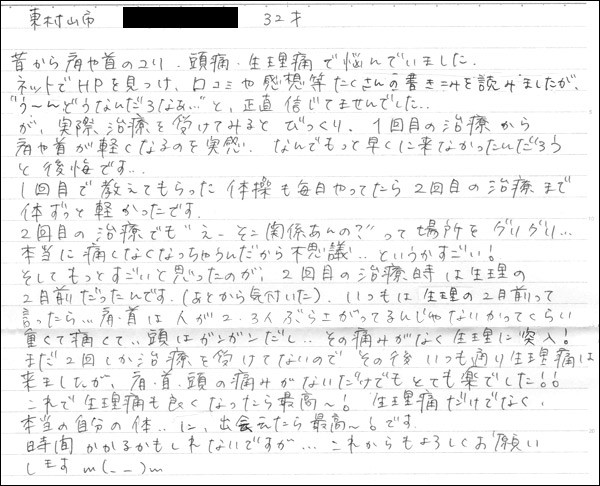 東村山市 32才
昔から肩や首のコリ、頭痛・生理痛で悩んでいました。
ネットでHPを見つけ、口コミや感想等たくさんの書きこみを読みましたが、
"う〜んどうなんだろなぁ…"と、正直信じてませんでした..
が、実際治療を受けてみるとびっくり、1回目の治療から
肩や首が軽くなるのを実感。なんでもっと早くに来なかったんだろう
と後悔です…
1回目で教えてもらった体操も毎日やってたら2回目の治療まで
体ずっと軽かったです。
2回目の治療でも"えーそこ関係あんの?"って場所をグリグリ…
本当に痛くなくなっちゃうんだから不思議..というかすごい!
そしてもっとすごいと思ったのが、2回目の治療時は生理の
2日前だったんです。(あとから気付いた)、いつもは生理の2日前って
言ったら…肩・首は人が2、3人ぶら下がってるんじゃないかってくらい
重くて痛くて..頭はガンガンだし..その痛みがなく生理に突入!
まだ2回しか治療を受けてないのでその後いつも通り生理痛は
来ましたが、肩・首・頭の痛みがないだけでもとても楽でした!!
これで生理痛も良くなったら最高〜!生理痛だけでなく、
本当の自分の体..に、出会えたら最高〜!です。
時間かかるかもしれないですが…これからもよろしくお願い
します m(_ _)m